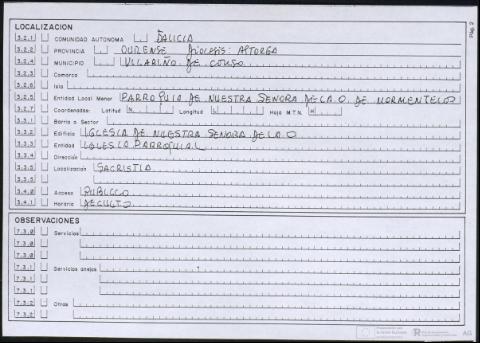 Pág. 2
LOCALIZACION
3.2.1 COMUNIDAD AUTONOMA GALICIA
3.2.2 PROVINCIA OURENSE DIOCESIS: ASTORGA
3.2.4 MUNICIPIO VILLARIÑO DE CONSO
3.2.3 Comarca
3.2.6 Isla
3.2.5 Entidad Local Menor PARROQUIA DE NUESTRA SENORA DE LA O. DE NORMENTELOS
3.2.7 Coordenadas: Latitud N Longitud Hoja M.T.N.
3.3.1 Barrio o Sector
3.3.2 Edificio IGLESIA DE NUESTRA SENORA DE LA O
3.3.3 Entidad IGLESIA PARROQUIAL
3.3.4 Dirección
3.3.5 Localización SACRISTIA
3.3.5
3.4.0 Acceso PUBLICO
3.4.1 Horario DE CULTO
OBSERVACIONES
7.3.0 Servicios
7.3.0
7.3.0
7.3.1 Servicios anejos
7.3.1
7.3.1
7.3.2 Otros
7.3.2